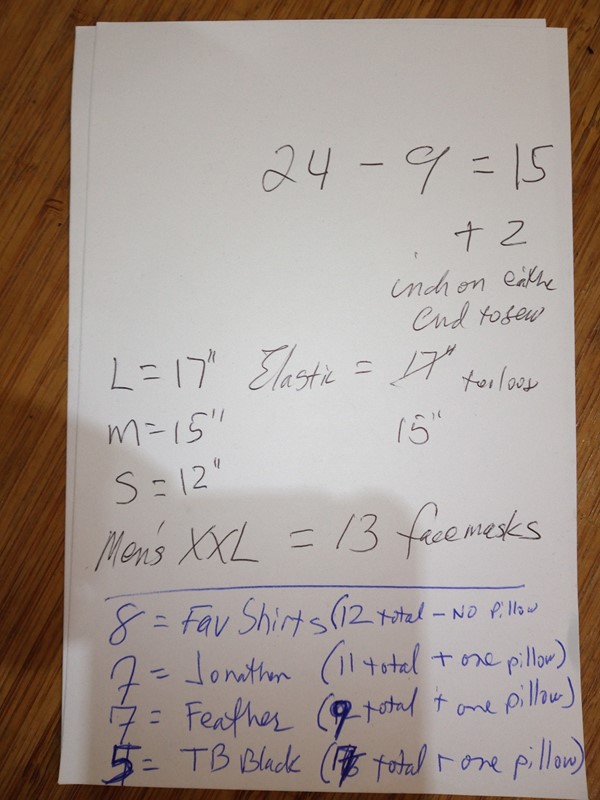 24 - 9 = 15
+ 2
inch on eithe
end to sew
L = 17" Elastic = 17" too loos
M = 15" 15"
S = 12"
Men's XXL = 13 facemasks
8 = Fav Shirts (12 total - NO pillow
7 = Jonathan (11 total + one pillow)
7 = Feather (9 total + one pillow)
5 = TB Black ( total + one pillow)